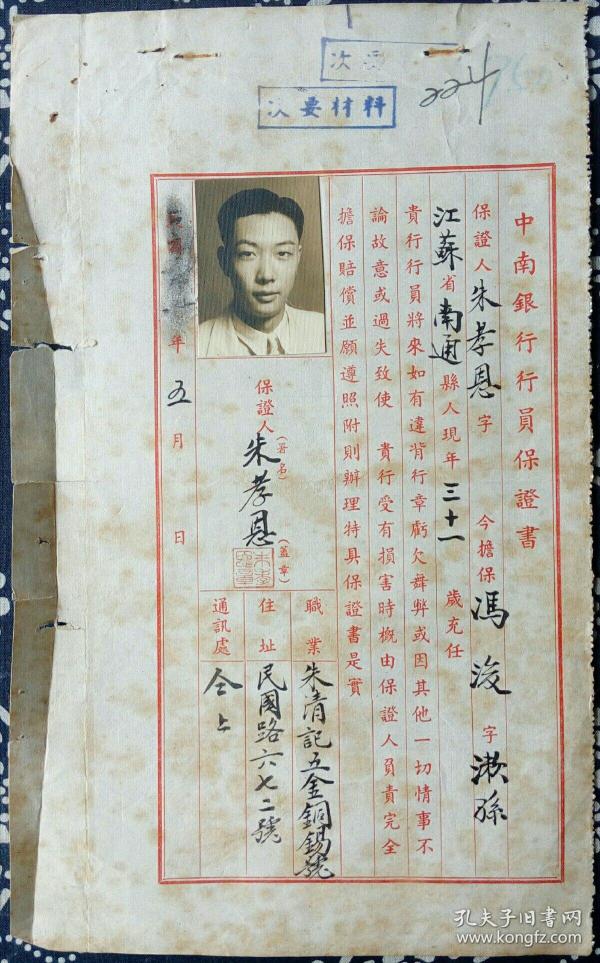 次要材料
224
中南銀行行員保證書
保證人朱孝恩字 今擔保馮浚字漱孫
江蘇省南通縣人現年三十一歲充任
貴行行員將來如有違背行章虧欠舞弊或因其他一切情事不
論故意或過失致使 貴行受有損害時概由保證人負責完全
擔保賠償並願遵照附則辦理特具保證書是實
保證人(署名)朱孝恩(蓋章)
職業 朱清記五金銅錫號
住址 民國路六七二號
通訊處 仝上
年五月 日
孔夫子旧书网
www.kongfz.com